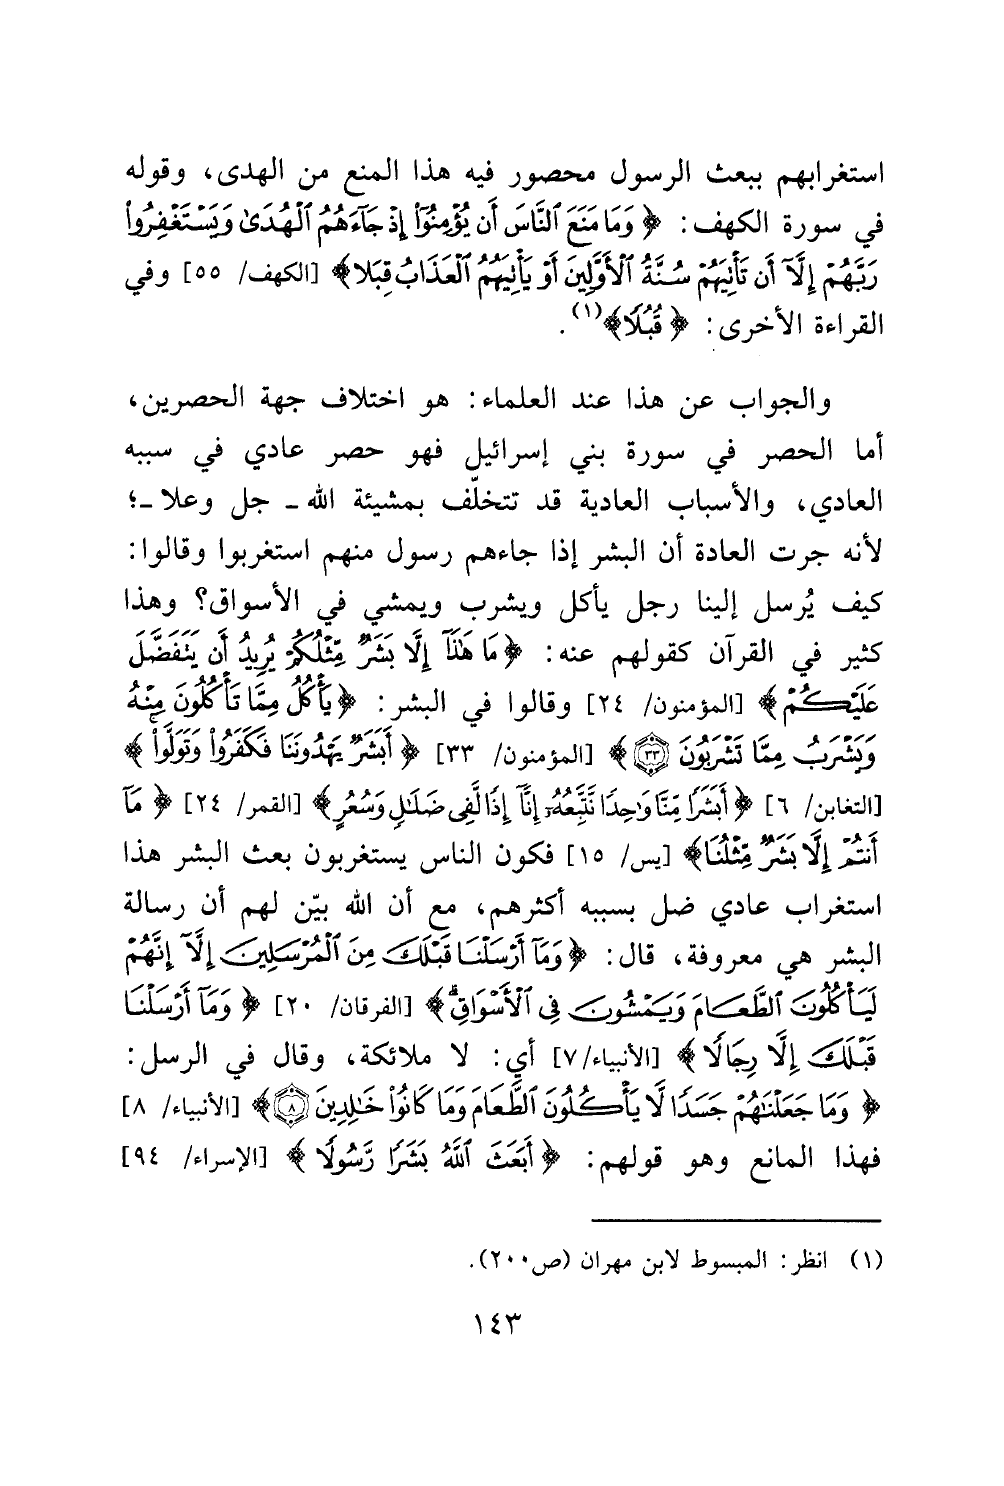 استغرابهم ببعث الرسول محصور فيه هذا المنع من الهدى، وقوله
في سورة الكهف: ﴿ وَمَا مَنَعَ ٱلنَّاسَ أَن يُؤْمِنُوٓا۟ إِذْ جَآءَهُمُ ٱلْهُدَىٰ وَيَسْتَغْفِرُوا۟
رَبَّهُمْ إِلَّآ أَن تَأْتِيَهُمْ سُنَّةُ ٱلْأَوَّلِينَ أَوْ يَأْتِيَهُمُ ٱلْعَذَابُ قِبَلا﴾ [الكهف/ ٥٥] وفي
القراءة الأخرى: ﴿ قُبُلًا﴾(١).
والجواب عن هذا عند العلماء: هو اختلاف جهة الحصرين،
أما الحصر في سورة بني إسرائيل فهو حصر عادي في سببه
العادي، والأسباب العادية قد تتخلّف بمشيئة الله ـ جل وعلا ـ؛
لأنه جرت العادة أن البشر إذا جاءهم رسول منهم استغربوا وقالوا:
كيف يُرسل إلينا رجل يأكل ويشرب ويمشي في الأسواق؟ وهذا
كثير في القرآن كقولهم عنه: ﴿مَا هَٰذَآ إِلَّا بَشَرٌ مِّثْلُكُمْ يُرِيدُ أَن يَتَفَضَّلَ
عَلَيْكُمْ﴾ [المؤمنون/ ٢٤] وقالوا في البشر: ﴿يَأْكُلُ مِمَّا تَأْكُلُونَ مِنْهُ
وَيَشْرَبُ مِمَّا تَشْرَبُونَ ٣٣﴾ [المؤمنون/ ٣٣] ﴿ أَبَشَرٌ يَهْدُونَنَا فَكَفَرُوا۟ وَتَوَلَّوا۟ ﴾
[التغابن/ ٦] ﴿ أَبَشَرًا مِّنَّا وَٰحِدًا نَّتَّبِعُهُۥٓ إِنَّآ إِذًا لَّفِى ضَلَٰلٍ وَسُعُرٍ﴾ [القمر/ ٢٤] ﴿ مَآ
أَنتُمْ إِلَّا بَشَرٌ مِّثْلُنَا﴾ [يس/ ١٥] فكون الناس يستغربون بعث البشر هذا
استغراب عادي ضل بسببه أكثرهم، مع أن الله بيّن لهم أن رسالة
البشر هي معروفة، قال: ﴿ وَمَآ أَرْسَلْنَا قَبْلَكَ مِنَ ٱلْمُرْسَلِينَ إِلَّآ إِنَّهُمْ
لَيَأْكُلُونَ ٱلطَّعَامَ وَيَمْشُونَ فِى ٱلْأَسْوَاقِۗ﴾ [الفرقان/ ٢٠] ﴿ وَمَآ أَرْسَلْنَا
قَبْلَكَ إِلَّا رِجَالًا ﴾ [الأنبياء/ ٧] أي: لا ملائكة، وقال في الرسل:
﴿ وَمَا جَعَلْنَٰهُمْ جَسَدًا لَّا يَأْكُلُونَ ٱلطَّعَامَ وَمَا كَانُوا۟ خَٰلِدِينَ ٨﴾ [الأنبياء/ ٨]
فهذا المانع وهو قولهم: ﴿ أَبَعَثَ ٱللَّهُ بَشَرًا رَّسُولًا ﴾ [الإسراء/ ٩٤]
(١) انظر: المبسوط لابن مهران (ص٢٠٠).
١٤٣